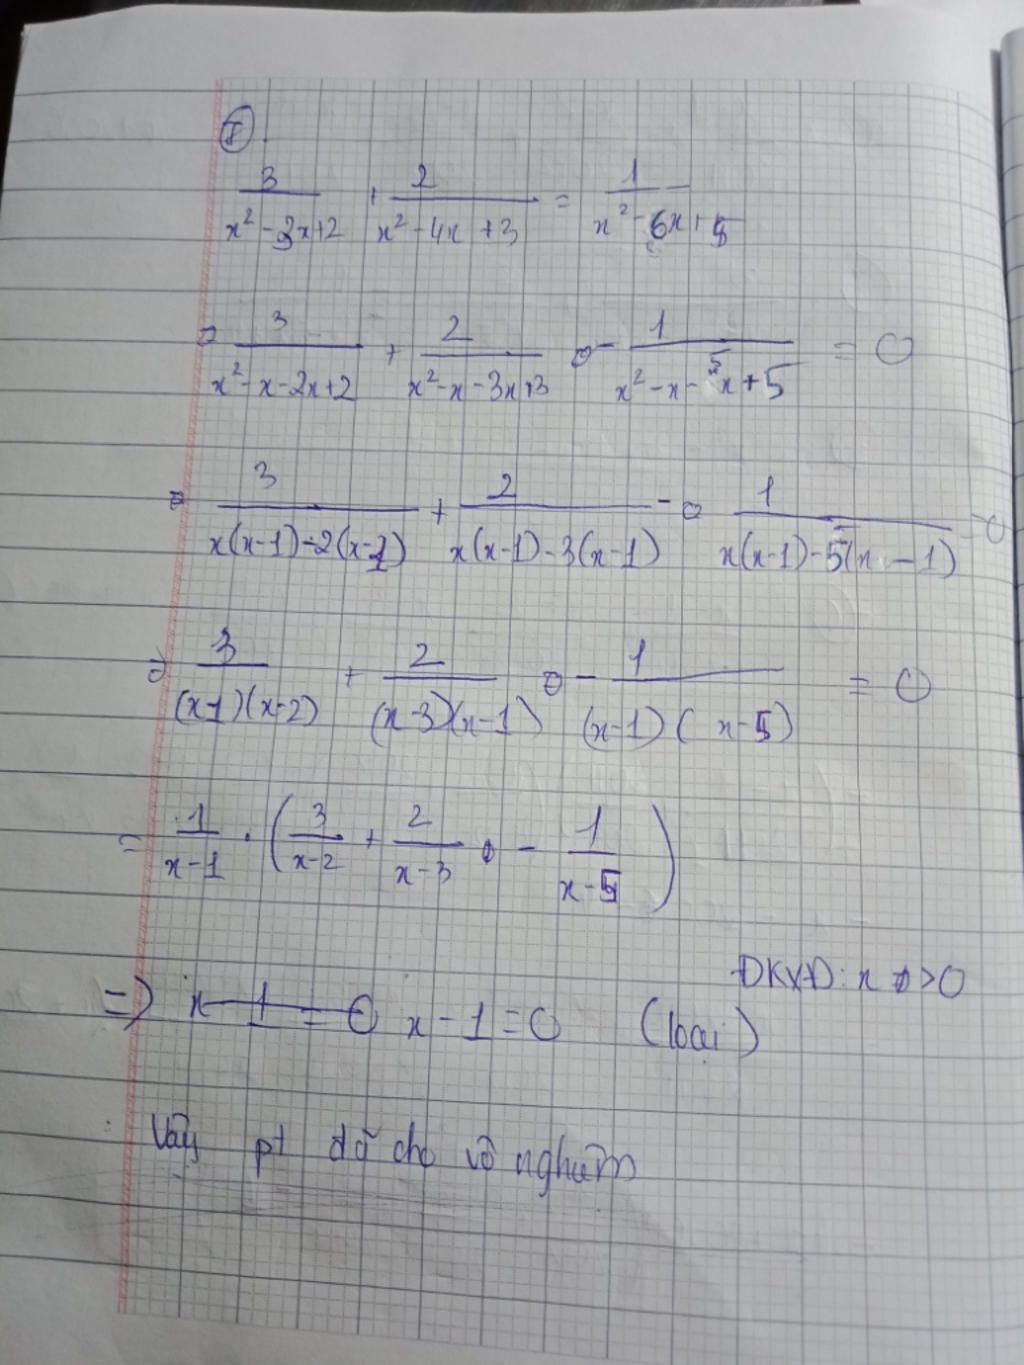 I
3/(x² - 3x + 2) + 2/(x² - 4x + 3) = 1/(x² - 6x + 5)
⇒ 3/(x² - x - 2x + 2) + 2/(x² - x - 3x + 3) - 1/(x² - x - 5x + 5) = 0
⇒ 3/(x(x-1) - 2(x-1)) + 2/(x(x-1) - 3(x-1)) - 1/(x(x-1) - 5(x-1)) = 0
⇒ 3/((x-1)(x-2)) + 2/((x-3)(x-1)) - 1/((x-1)(x-5)) = 0
= 1/(x-1) · (3/(x-2) + 2/(x-3) - 1/(x-5))
ĐKXĐ: x > 0
=> x - 1 = 0 x - 1 = 0 (loại)
Vậy pt đã cho vô nghiệm